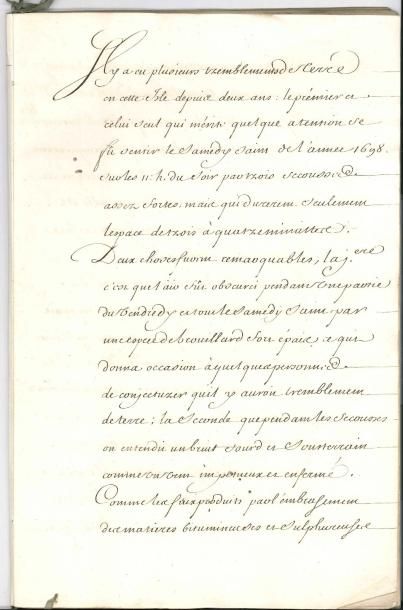 Il y a eu plusieurs tremblemens de terre
en cette Isle depuis deux ans. le premier et
celui seul qui mérite quelque atention se
fit sentir le Samedy Saint de l'année 1698.
sur les 11. h. du soir par trois secousses
assez fortes mais qui durerent seulement
l'espace de trois à quatre minuttes.
Deux choses furent remarquables, la j.ere
c'est que l'air fut obscurci pendant une partie
du Vendredy et tout le Samedy Saint par
une espece de brouillard fort épais, ce qui
donna occasion à quelques personnes
de conjecturer qu'il y auroit tremblement
de terre; la Seconde que pendant les Secousses
on entendit un bruit sourd et Souterrain
comme un vent impetueux et enfermé.
Comme les feux produits par l'embrasement
des matieres bitumineuses et sulphureuses